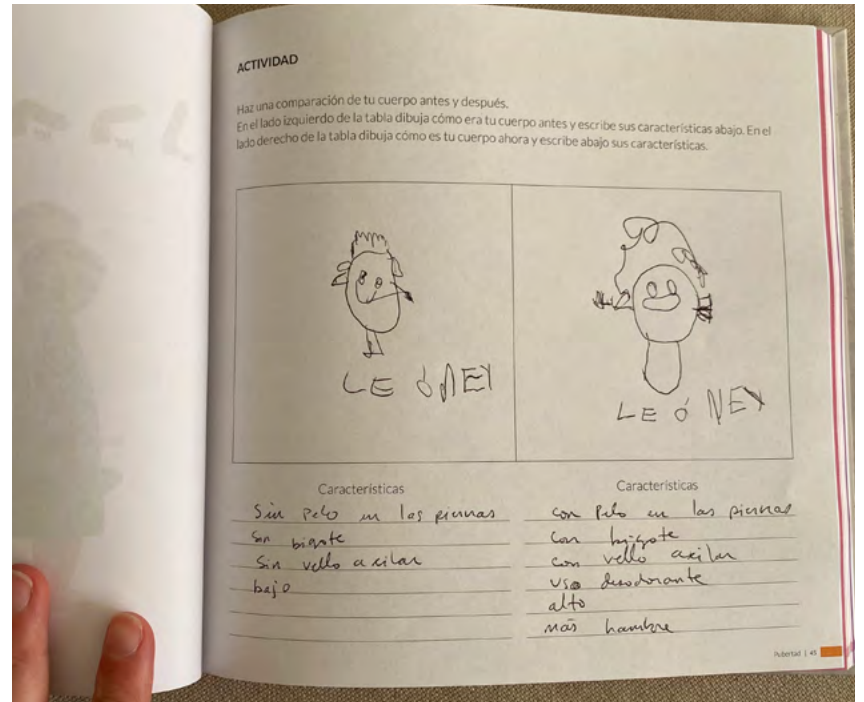 ACTIVIDAD
Haz una comparación de tu cuerpo antes y después.
En el lado izquierdo de la tabla dibuja cómo era tu cuerpo antes y escribe sus características abajo. En el
lado derecho de la tabla dibuja cómo es tu cuerpo ahora y escribe abajo sus características.
LE ÓNEY
LE Ó NEY
Características
Sin pelo en las piernas
Sin bigote
Sin vello axilar
bajo
Características
con pelo en las piernas
Con bigote
con vello axilar
uso desodorante
alto
más hambre
Pubertad | 45